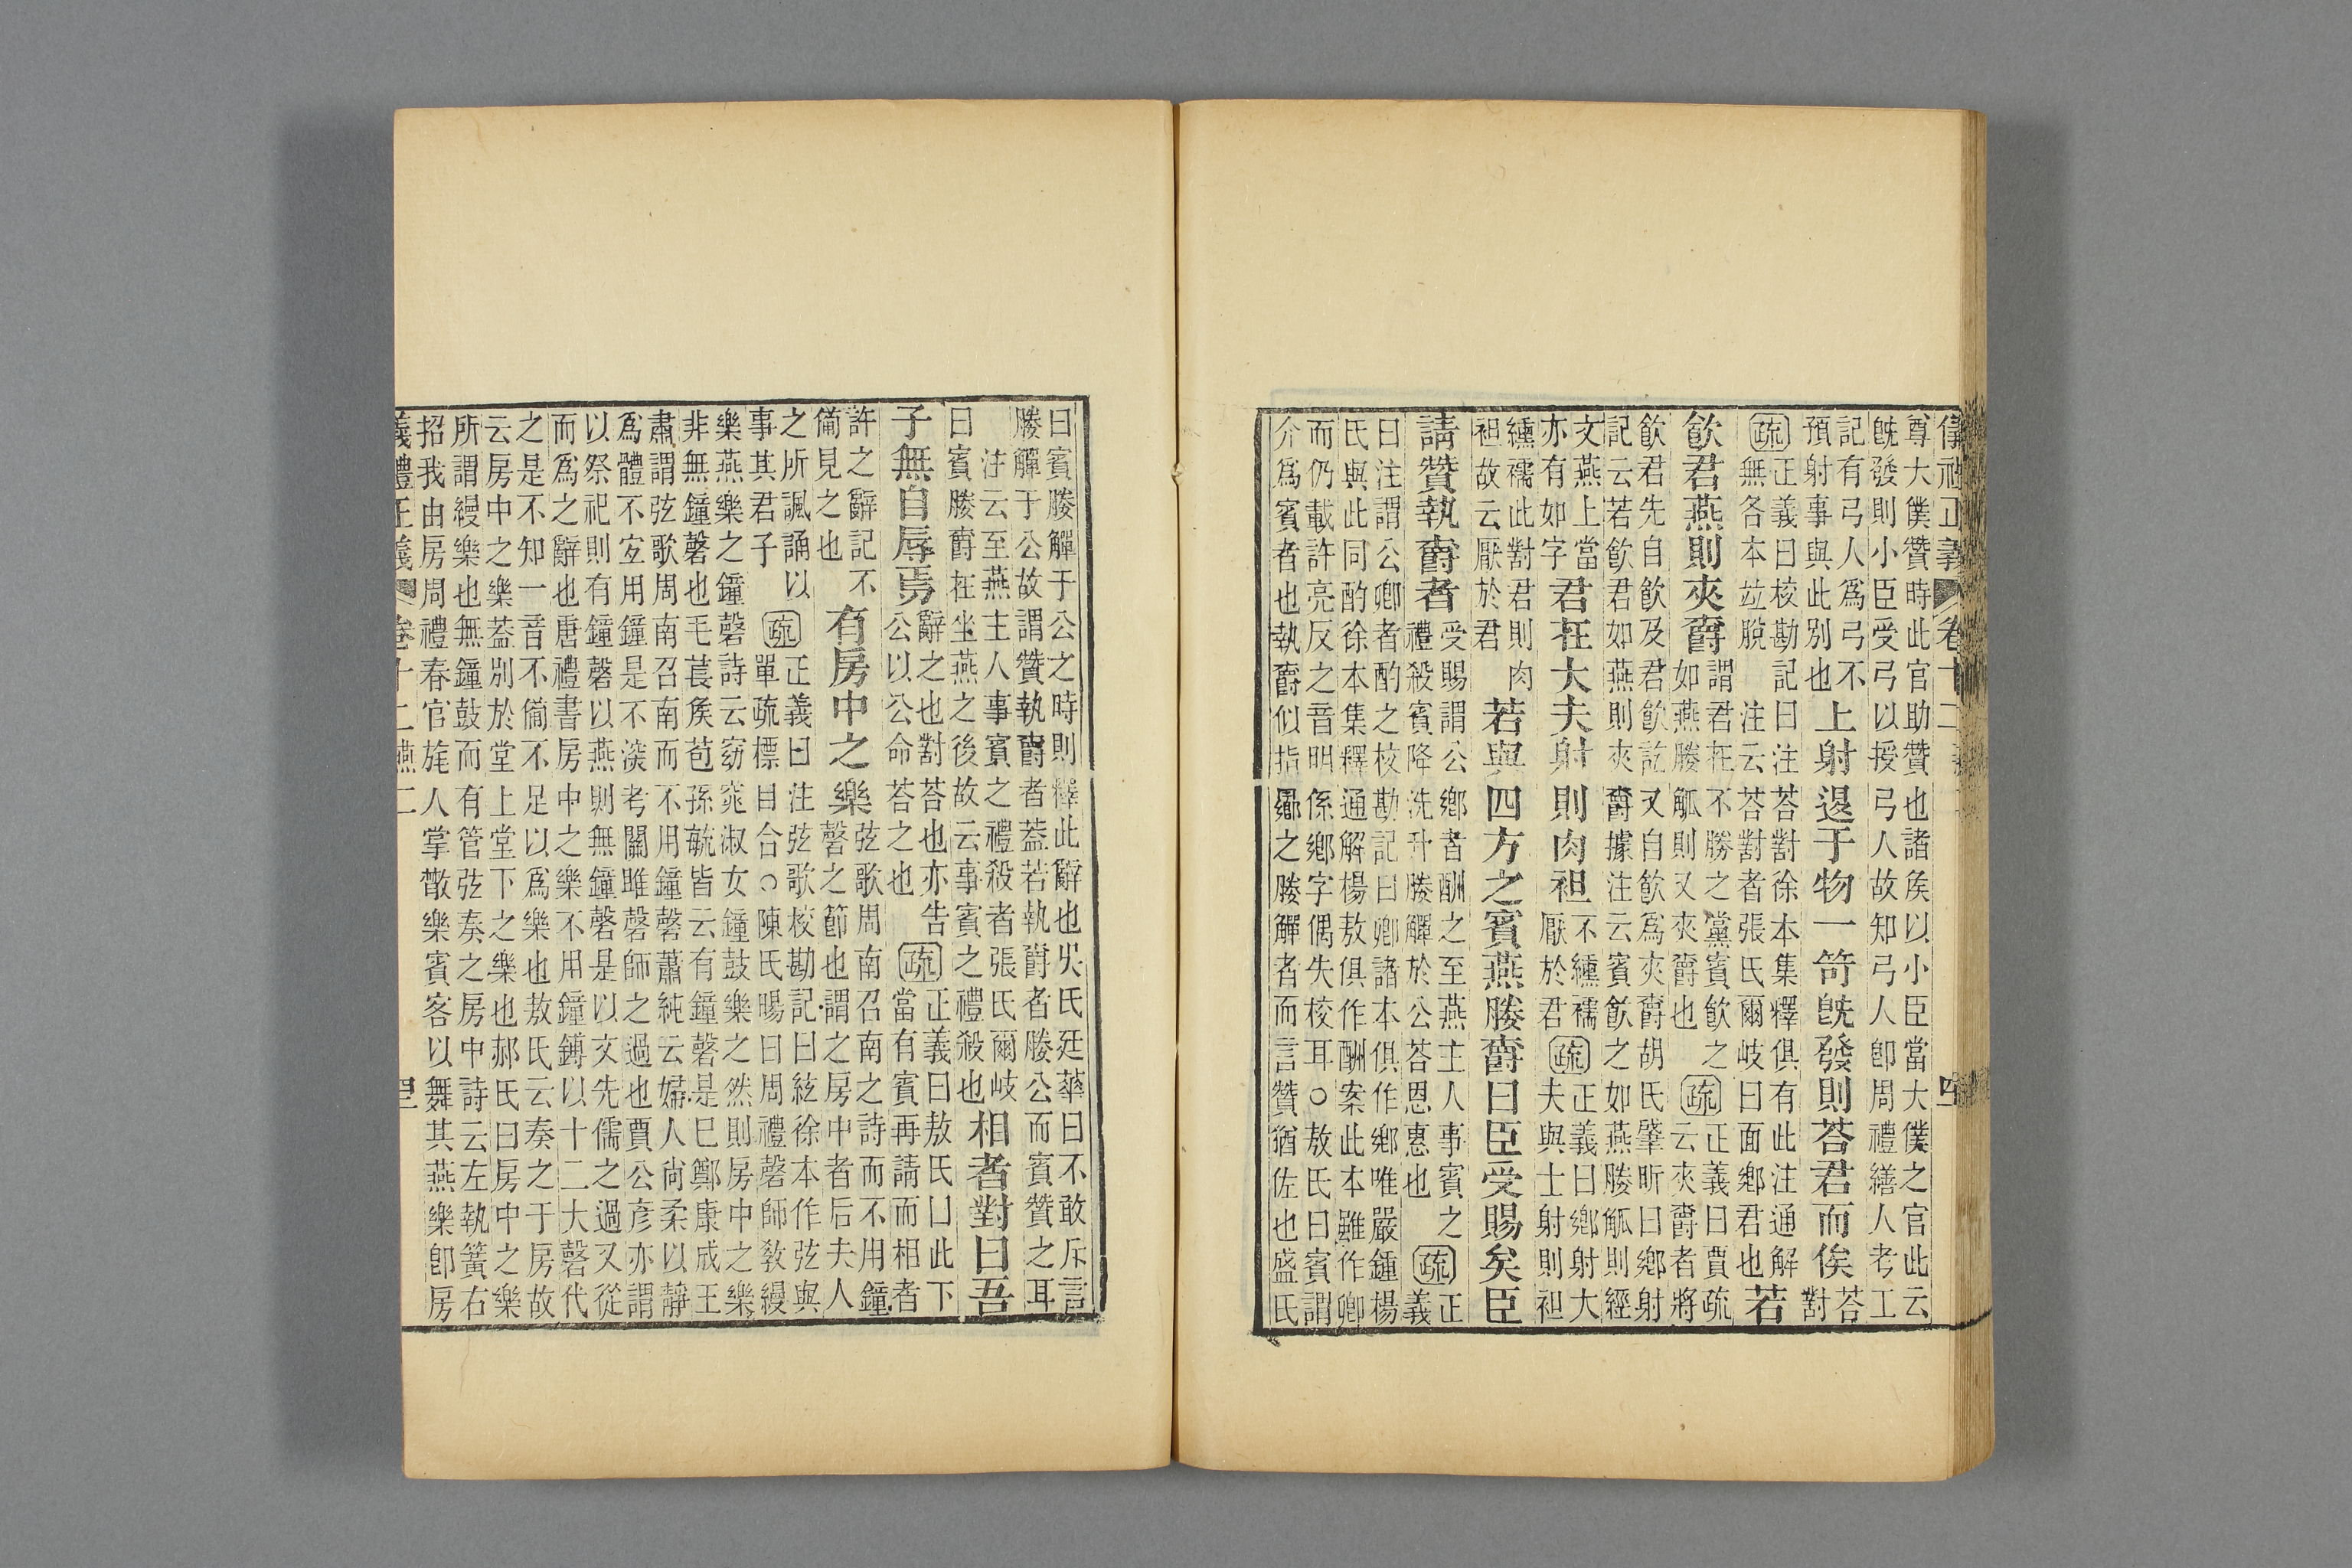 儀禮正義 卷十二 四
尊大僕贊時此官助贊也諸矦以小臣當大僕之官此云
旣發則小臣受弓以授弓人故知弓人卽周禮繕人考工
記有弓人爲弓不
預射事與此別也
上射退于物一笴旣發則荅君而俟
荅
對
疏
正義曰校勘記曰注荅對徐本集釋俱有此注通解
無各本竝脫 注云荅對者張氏爾岐曰面鄕君也
若
飮君燕則夾爵
謂君在不勝之黨賓飮之
如燕媵觚則又夾爵也
疏
正義曰賈疏
云夾爵者將
飮君先自飮及君飮訖又自飮爲夾爵胡氏肇昕曰鄕射
記云若飮君如燕則夾爵據注云賓飮之如燕媵觚則經
文燕上當
亦有如字
君在大夫射則肉袒
不纁襦
厭於君
疏
正義曰鄕射大
夫與士射則袒
纁襦此對君則肉
袒故云厭於君
若與四方之賓燕媵爵曰臣受賜矣臣
請贊執爵者
受賜謂公鄕者酬之至燕主人事賓之
禮殺賓降洗升媵觶於公荅恩惠也
疏
正
義
曰注謂公卿者酌之校勘記曰卿諸本俱作鄕唯嚴鍾楊
氏與此同酌徐本集釋通解楊敖俱作酬案此本雖作卿
而仍載許亮反之音明係鄕字偶失校耳○敖氏曰賓謂
介爲賓者也執爵似指曏之媵觶者而言贊猶佐也盛氏
曰賓媵觶于公之時則釋此辭也吳氏廷華曰不敢斥言
媵觶于公故謂贊執爵者蓋若執爵者媵公而賓贊之耳
注云至燕主人事賓之禮殺者張氏爾岐
曰賓媵爵在坐燕之後故云事賓之禮殺也
相者對曰吾
子無自辱焉
辭之也對荅也亦告
公以公命荅之也
疏
正義曰敖氏曰此下
當有賓再請而相者
許之辭記不
備見之也
有房中之樂
弦歌周南召南之詩而不用鐘
磬之節也謂之房中者后夫人
之所諷誦以
事其君子
疏
正義曰注弦歌校勘記曰絃徐本作弦與
單疏標目合○陳氏暘曰周禮磬師敎縵
樂燕樂之鐘磬詩云窈窕淑女鐘鼓樂之然則房中之樂
非無鐘磬也毛萇矦苞孫毓皆云有鐘磬是巳鄭康成王
肅謂弦歌周南召南而不用鐘磬蕭純云婦人尙柔以靜
爲體不宜用鐘是不深考關雎磬師之過也賈公彥亦謂
以祭祀則有鐘磬以燕則無鐘磬是以文先儒之過又從
而爲之辭也唐禮書房中之樂不用鐘鎛以十二大磬代
之是不知一音不備不足以爲樂也敖氏云奏之于房故
云房中之樂蓋別於堂上堂下之樂也郝氏曰房中之樂
所謂縵樂也無鐘鼓而有管弦奏之房中詩云左執簧右
招我由房周禮春官旄人掌散樂賓客以舞其燕樂卽房
義禮正義 卷十二 燕二